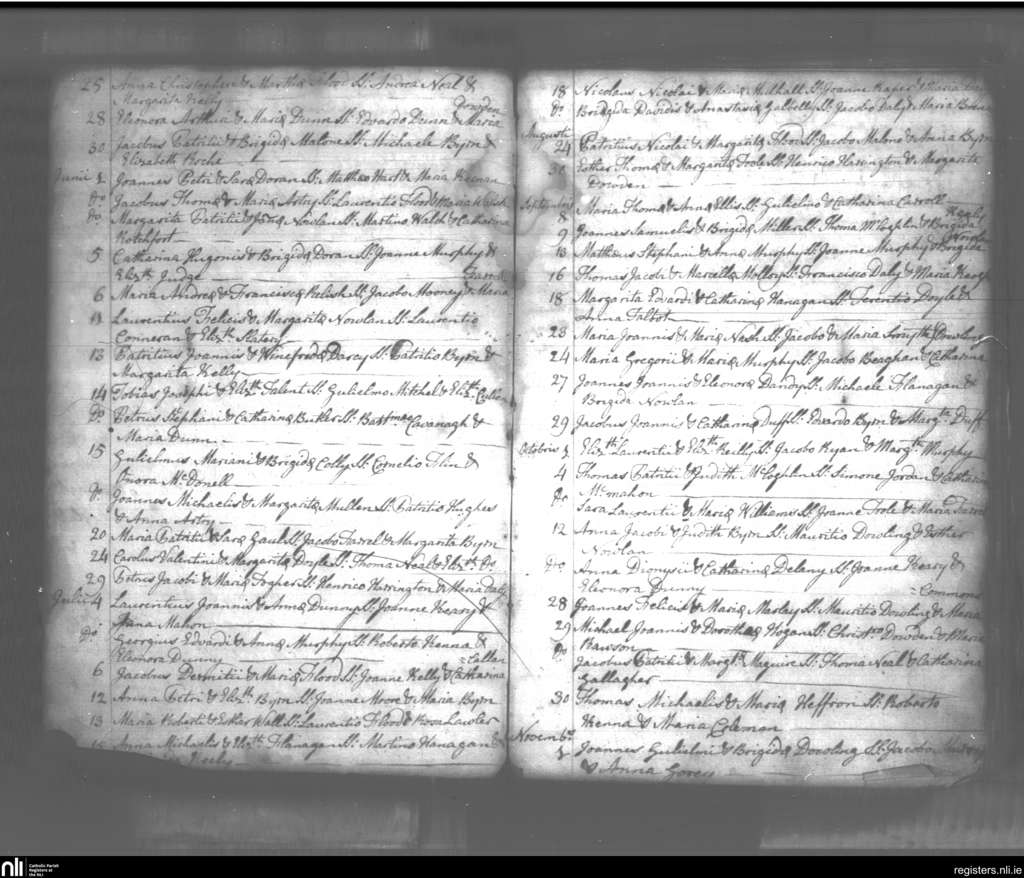 25 Anna Christopheri & Marthæ Flood Ss. Andrea Neil &
Margarita Kelly
Dowden
28 Eleonora Arthuri & Mariæ Dunn Ss. Edvardo Dunn & Maria
30 Jacobus Patritii & Brigidæ Malone Ss. Michaele Byrn &
Elizabeth Roche
Junii 1 Joannes Petri & Saræ Doran Ss. Mattheo Ward & Maria Keenan
do Jacobus Thomæ & Mariæ Artry Ss. Laurentio Flood & Maria Walsh
do Margarita Patritii & Nowlan Ss. Martino Walsh & Catharina
Rotchfort
5 Catharina Hugonis & Brigidæ Doran Ss. Joanne Murphy &
Elizth Judge
Farrell
6 Maria Andreæ & Franciscæ Relish Ss. Jacobo Mooney & Maria
11 Laurentius Felicis & Margaritæ Nowlan Ss. Laurentio
Conneran & Elizth Slatery
13 Patritius Joannis & Winefredæ Darcy Ss. Patritio Byrn &
Margarita Kelly
14 Tobias Josephi & Elizth Talent Ss. Gulielmo Mitchel & Elizth Cullen
Do Petrus Stephani & Catharinæ Butler Ss. Bartmeo Cavanagh &
Maria Dunn
15 Gulielmus Mariani & Brigidæ Colly Ss. Cornelio Flin &
Onora McDonell
do Joannes Michaelis & Margaritæ Mullen Ss. Patritio Hughes
& Anna Artry
20 Maria Patritii & Saræ Gaul Ss. Jacobo Farrel & Margarita Byrn
24 Carolus Valentini & Margaritæ Doyle Ss. Thoma Neal & Elizth Do
29 Petrus Jacobi & Mariæ Ss. Henrico Harrington & Maria Daly
Julii 4 Laurentius Joannis & Annæ Dunny Ss. Joanne Keary &
Anna Mahon
Do Georgius Edvardi & Annæ Murphy Ss. Roberto Kenna &
Eleonora Dunny
Cullen
6 Jacobus Dermitii & Mariæ Flood Ss. Joanne Kelly & Catharina
12 Anna Petri & Elizth Byrn Ss. Joanne Moore & Maria Byrn
13 Maria Roberti & Esther Wall Ss. Laurentio Flood & Rosa Lawler
Anna Michaelis & Elizth Flanagan Ss. Martino Hanagan &
Keely
18 Nicolaus Nicolai & Mariæ Mulhall Ss. Joanne & Maria
do Brigida Davidis & Anastasiæ Ss. Jacobo Daly & Maria
Augusti
24 Patritius Nicolai & Margaritæ Flood Ss. Jacobo Malone & Anna Byrn
30 Esther Thomæ & Margaritæ Toole Ss. Henrico Harrington & Margarita
Dowden
Septembris
8 Maria Thomæ & Annæ Ellis Ss. Gulielmo & Catharina Carroll
Kearly
9 Joannes Samuelis & Brigidæ Miller Ss. Thoma McLoghlin & Brigida
Nowlan
13 Matthæus Stephani & Annæ Murphy Ss. Joanne Murphy & Brigida
16 Thomas Jacobi & Marcellæ Molloy Ss. Francisco Daly & Maria
18 Margarita Edvardi & Catharinæ Hanagan Ss. Terentio Doyle &
Anna Talbot
23 Maria Joannis & Mariæ Nash Ss. Jacobo & Maria Smyth
24 Maria Gregorii & Mariæ Murphy Ss. Jacobo Beaghan & Catharina
27 Joannes Joannis & Eleonoræ Dandy Ss. Michaele Flanagan &
Brigida Nowlan
29 Jacobus Joannis & Catharinæ Duff Ss. Edvardo Byrn & Margta Duff
Octobris 1 Elizth Laurentii & Elizth Kelly Ss. Jacobo Ryan & Margth Murphy
4 Thomas Patritii & Judith McLoghlin Ss. Simone Jordan & Catharina
McMahon
do Sara Laurentii & Mariæ Williams Ss. Joanne Toole & Maria Farrel
12 Anna Jacobi & Judith Byrn Ss. Mauritio Dowling & Esther
Nowlan
do Anna Dionysii & Catharinæ Delany Ss. Joanne Keary &
Eleonora Dunny
Commons
28 Joannes Felicis & Mariæ Marley Ss. Mauritio Dowling & Maria
29 Michael Joannis & Dorotheæ Hogan Ss. Christro Dowden & Maria
Rawson
Do Jacobus Patritii & Margta Maguire Ss. Thoma Neal & Catharina
Gallagher
30 Thomas Michaelis & Mariæ Heffron Ss. Roberto
Kenna & Maria Coleman
Novembs
1 Joannes Gulielmi & Brigidæ Dowling Ss. Jacobo
& Anna Gorey
nli Catholic Parish
Registers at
the NLI
registers.nli.ie